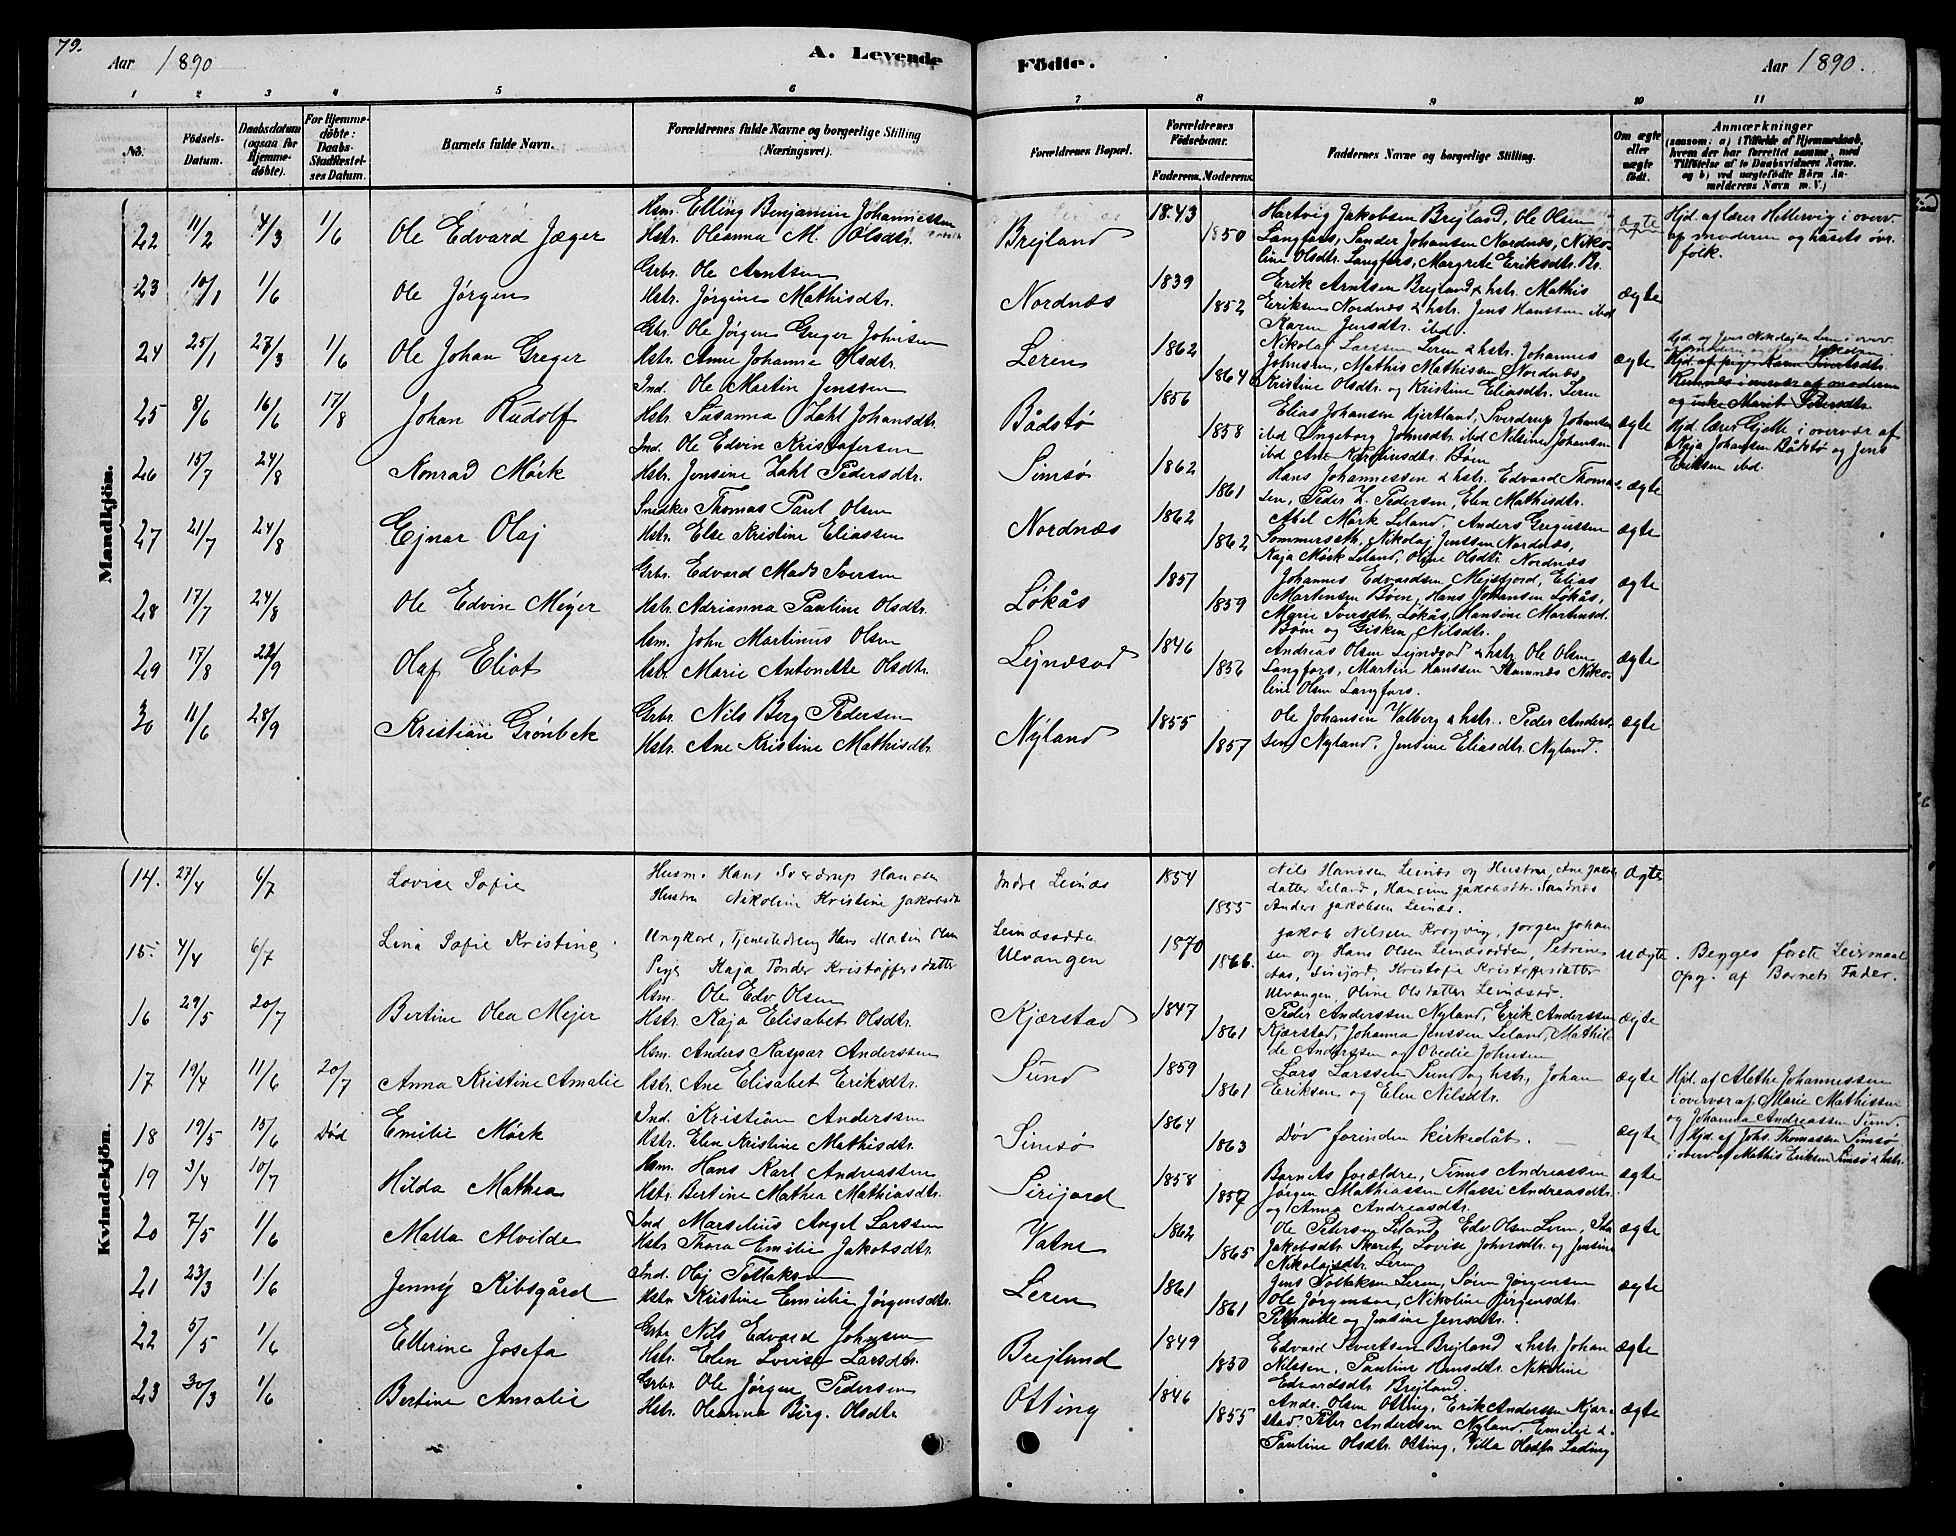 79.
Aar 1890
A. Levende
Fødte.
Aar 1890.
1 2 3 4 5 6 7 8 9 10 11
No.
Fødsels-Datum.
Daabsdatum (ogsaa for Hjemmedøbte).
For Hjemmedøbte: Daabs-Stadfæstelses Datum.
Barnets fulde Navn.
Forældrenes fulde Navne og borgerlige Stilling (Næringsvei).
Forældrenes Bopæl.
Forældrenes Fødselsaar.
Faderens. Moderens.
Faddernes Navne og borgerlige Stilling.
Om ægte eller uægte født.
Anmærkninger
(saasom: a) i Tilfælde af Hjemmedaab, hvem der har forrettet samme, med Tilføielse af to Daabsvidners Navne. og b) ved uægtefødte Børn Anmelderens Navn m. V.)
Mandkjön.
22 11/2 4/3 1/6 Ole Edvard Jæger
Hsm. Elling Benjamin Johannessen
Hstr. Oleanna M. Olsdtr.
Brejland 1843 1850
Hartvig Jakobsen Brejland, Ole Olsen
Langfors, Sander Johansen Nordnæs, Niko-
line Olsdtr. Langfors, Margrete Eriksdtr. Br.
ægte
Hjd. af lærer Hettervig i overv.
af moderen og husets øvr.
folk.
23 10/1 1/6 Ole Jørgen
Grbr. Ole Arntsen
Hstr. Jørgine Mathisdtr.
Nordnæs 1839 1852
Erik Arntsen Brejland & hstr. Mathis
Eriksen Nordnæs & hstr. Jens Hanssen ibd
Karen Jensdtr. ibd.
ægte
24 25/1 27/3 1/6 Ole Johan Greger
Grbr. Ole Jørgen Greger Johnsen
Hstr. Anne Johanna Olsdtr.
Leren 1862 1864
Nikolaj Larssen Leren & hstr. Johannes
Johnsen, Mathis Mathissen Nordnæs,
Kristine Olsdtr. og Kristine Eliasdtr. Leren
ægte
Hjd. af Jens Nikolajsen Leren i overv.
25 8/6 16/6 17/8 Johan Rudolf
Ind. Ole Martin Jenssen
Hstr. Susanna Zahl Johansdtr.
Bådstø 1856 1858
Elias Johansen Hjertland, Sverdrup Johansen
ibd Ingeborg Johnsdtr. ibd Nelsine Johansen
ibd Ane Martinsdtr. Bøen
ægte
Hjd. lærer Gjette i overvær af
Kaja Johansen Bådstø og Jens
Eriksen ibd.
26 15/7 24/8 Konrad Mörk
Ind. Ole Edvin Kristofersen
Hstr. Jensine Zahl Pedersdtr.
Simsø 1862 1861
Hans Johannessen & hstr. Edvard Thomas-
sen, Peder Z. Pedersen, Elen Mathisdtr.
ægte
27 21/7 24/8 Ejnar Olaj
Smedker Thomas Paul Olsen
Hstr. Else Kristine Eliassen
Nordnæs 1862 1862
Abel Mörk Leland, Anders Gregussen
Sommerseth, Nikolaj Jenssen Nordnæs,
Kaja Mörk Leland, Oline Olsdtr. Nordnæs
ægte
28 17/7 24/8 Ole Edvin Mejer
Grbr. Edvard Mads Iversen
Hstr. Adrianna Pauline Olsdtr.
Løkås 1857 1859
Johannes Edvardsen Mejsfjord, Elias
Martensen Bøen, Hans Johansen Løkås,
Marie Iversdtr. Løkås, Hansine Martinsd.
Bøen og Gisken Nilsdtr.
ægte
29 17/8 28/9 Olaf Eliot
Hsm. John Martinus Olsen
Hstr. Marie Antonette Olsdtr.
Lejnæsod 1846 1856
Andreas Olsen Lejnæsod & hstr. Ole Olsen
Langfors, Martin Hanssen Stamnæs Niko-
line Olsen Langfors.
ægte
30 11/6 28/9 Kristian Grönbek
Grbr. Nils Berg Pedersen
Hstr. Ane Kristine Mathisdtr.
Nyland 1855 1857
Ole Johansen Valberg & hstr. Peder Anders-
sen Nyland, Jensine Eliasdtr. Nyland.
ægte
Kvindekjön.
14. 27/4 6/7 Lovise Sofie
Husm. Hans Sverdrup Hansen
Hustru Nikoline Kristine Jakobsdr
Indre Leinæs 1854 1855
Nils Hanssen Leinæs og Hustru, Ane Jakobs-
datter Leland, Hansine Jakobsdtr. Sandnæs
Anders Jakobsen Leinæs.
ægte
15. 4/4 6/7 Lina Sofie Kristine
Ungkarl, Tjenestedreng Hans Matin Olsen
Pige Kaja Tonder Kristoffersdatter
Leinæsodden
Ulvangen
1870 1866.
Jakob Nielsen Krogving, Jørgen Johan
sen og Hans Olsen Leinæsodden, Petrine
Aas, Sirijord, Kristofie Kristoffersdatter
Ulvangen, Oline Olsdatter Leinæsod.
uægte
Begges første Leiermaal
Opg. af Barnets Fader.
16 29/5 20/7 Bertine Olea Mejer
Hsm. Ole Edv. Olsen
Hstr. Kaja Elisabet Olsdtr.
Kjærstad 1847 1861
Peder Anderssen Nyland, Erik Anderssen
Kjærstad, Johanna Jenssen Leland, Mathil-
de Anderssen og Ovedie Johnsen
ægte
17 19/4 11/6 20/7 Anna Kristine Amalie
Hsm. Anders Kaspar Anderssen
Hstr. Ane Elisabet Eriksdtr.
Sund 1859 1861
Lars Larssen Sund og hstr, Johan
Eriksen og Elen Nilsdtr.
ægte
Hjd. af Alethe Johannessen
i overvær af Marie Mathissen
og Johanna Andreassen Sund.
18 19/5 15/6 Død Emilie Mörk
Ind. Kristian Anderssen
Hstr. Elen Kristine Mathisdtr.
Simsø 1864 1863
Död forinden kirkedåb.
ægte
Hjd. af Johs. Thomassen Simsø
i overv. af Mathis Eriksen Simsø & hstr.
19 3/4 10/7 Hilda Mathea
Hsm. Hans Karl Andreassen
Hstr. Bertine Mathea Mathiasdtr.
Sirijord 1858 1857
Barnets forældre, Tinus Andreassen
Jørgen Mathiassen Massi Andreasdtr.
og Anna Andreasdtr.
ægte
20 7/5 1/6 Malla Alvilde
Ind Marselius Angel Larssen
Hstr. Thora Emilie Jakobsdtr.
Vatne 1862 1865
Ole Petersen Leland, Edv. Olsen Leren, Ida
Jakobsdtr. Skarets, Lovise Johnsdtr. og Jensine
Nikolajsdtr. Leren
ægte
21 23/3 1/6 Jenny Ribsgård
Ind. Olaj Tollaksen
Hstr Kristine Emilie Jørgensdtr.
Leren 1861 1861
Jens Tollaksen Leren, Søren Jørgensen
Ole Jørgensen, Nikoline Jørgensdtr.
Pernille og Jensine Jensdtr.
ægte
22 5/5 1/6 Ellerine Josefa
Grbr Nils Edvard Johnsen
Hstr. Elen Lovise Larsdtr.
Brejland 1849 1850
Edvard Sivertsen Brejland & hstr. Johan
Nilssen, Pauline Hansdtr. Nikoline
Edvardsdtr. Brejland.
ægte
23 30/3 1/6 Bertine Amalie
Grbr Ole Jørgen Pedersen
Hstr. Olearina Birg. Olsdtr
Otting 1846 1855
Andr. Olsen Otting, Erik Anderssen Kjær-
stad Peter Anderssen Nyland, Emilie &
Pauline Olsdtr. Otting, Villa Olsdtr Leding
ægte